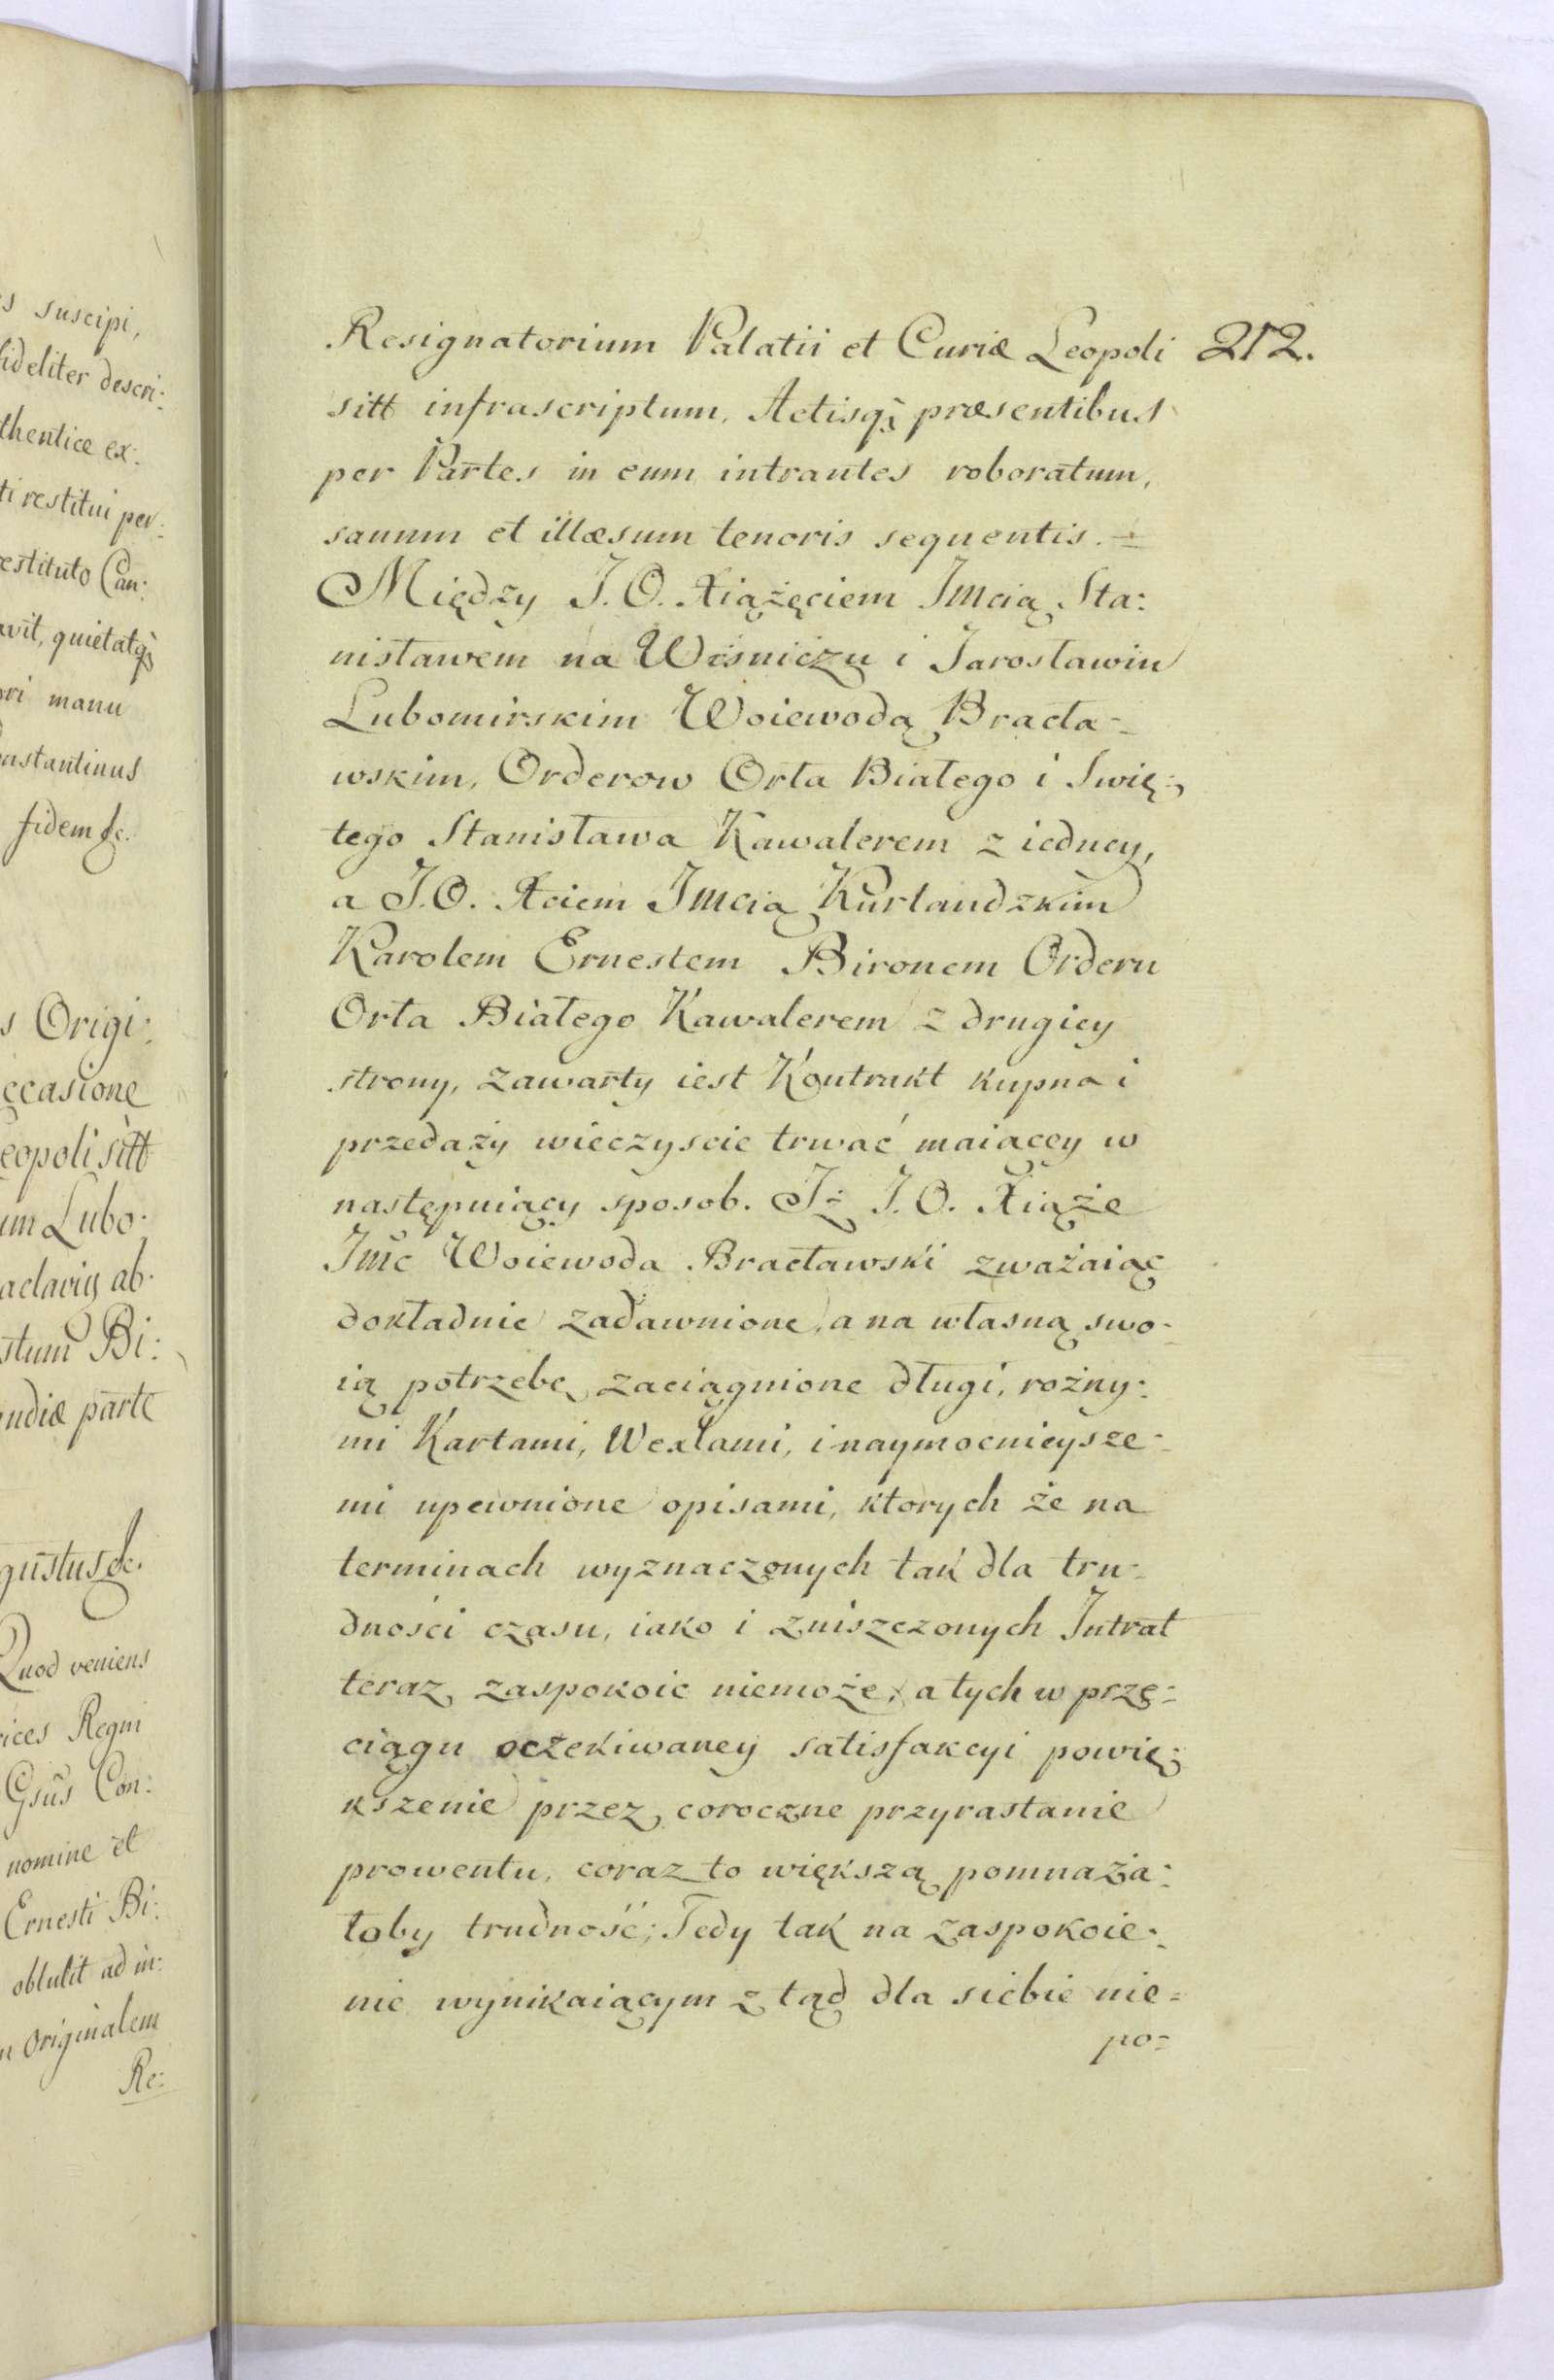 s suscipi,
fideliter descri:
thentice ex:
ti restitui per:
estituto Can:
avit, quietatqȝ
ori manu
onstantinus
fidem &c.
s Origi:
occasione
eopoli sitt
um Lubo:
aclaviȩ ab:
stum Bi:
ndiæ parte
gustus &c.
Quod veniens
vices Regni
Gsūs Con:
nomine et
Ernesti Bi:
obtulit ad in:
n Originalem
Re:
Resignatorium Palatii et Curiæ Leopoli 212.
sitt infrascriptum, Actisqȝ præsentibus
per Partes in eum intrantes roboratum,
sanum et illæsum tenoris sequentis. =
Między J. O. Xiążęciem Jmcią Sta:
nisławem na Wiśniczu i Jarosławiu
Lubomirskim Woiewodą Bracła-
wskim, Orderow Orła Białego i Swię:
tego Stanisława Kawalerem z iedney,
a J. O. Xciem Jmcią Kurlandzkim
Karolem Ernestem Bironem Orderu
Orła Białego Kawalerem z drugiey
strony, zawarty iest Kontrakt kupna i
przedaży wieczyscie trwać maiącey w
następuiący sposob. Iż J. O. Xiąże
Jmc Woiewoda Bracławski zważaiąc
dokładnie zadawnione, a na własną swo-
ią potrzebę zaciągnione długi, rożny:
mi Kartami, Wexlami, i naymocnieysze-
mi upewnione opisami, ktorych że na
terminach wyznaczonych tak dla tru-
dności czasu, iako i zniszczonych Intrat
teraz zaspokoic niemoże, a tych w prze-
ciągu oczekiwaney satisfakcyi powię:
kszenie przez coroczne przyrastanie
prowentu, coraz to większą pomnaża:
łoby trudność; Tedy tak na zaspokoie:
nie wynikaiącym z tąd dla siebie nie=
po=